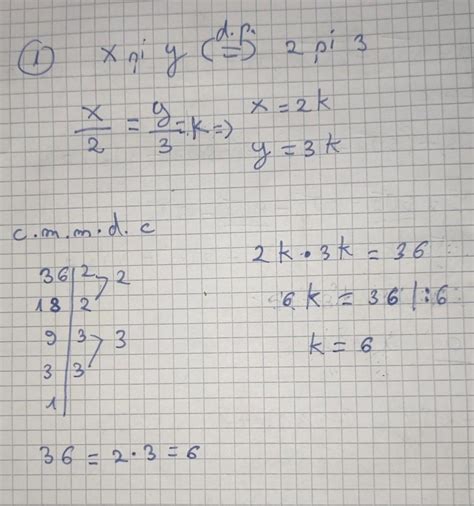 ① x și y (d.p. =) 2 și 3
x/2 = y/3 = k ⇒ x = 2k
y = 3k
c.m.m.d.c
36 | 2 > 2
18 | 2
9 | 3 > 3
3 | 3
1 |
36 = 2 · 3 = 6
2k · 3k = 36
6k = 36 | : 6
k = 6